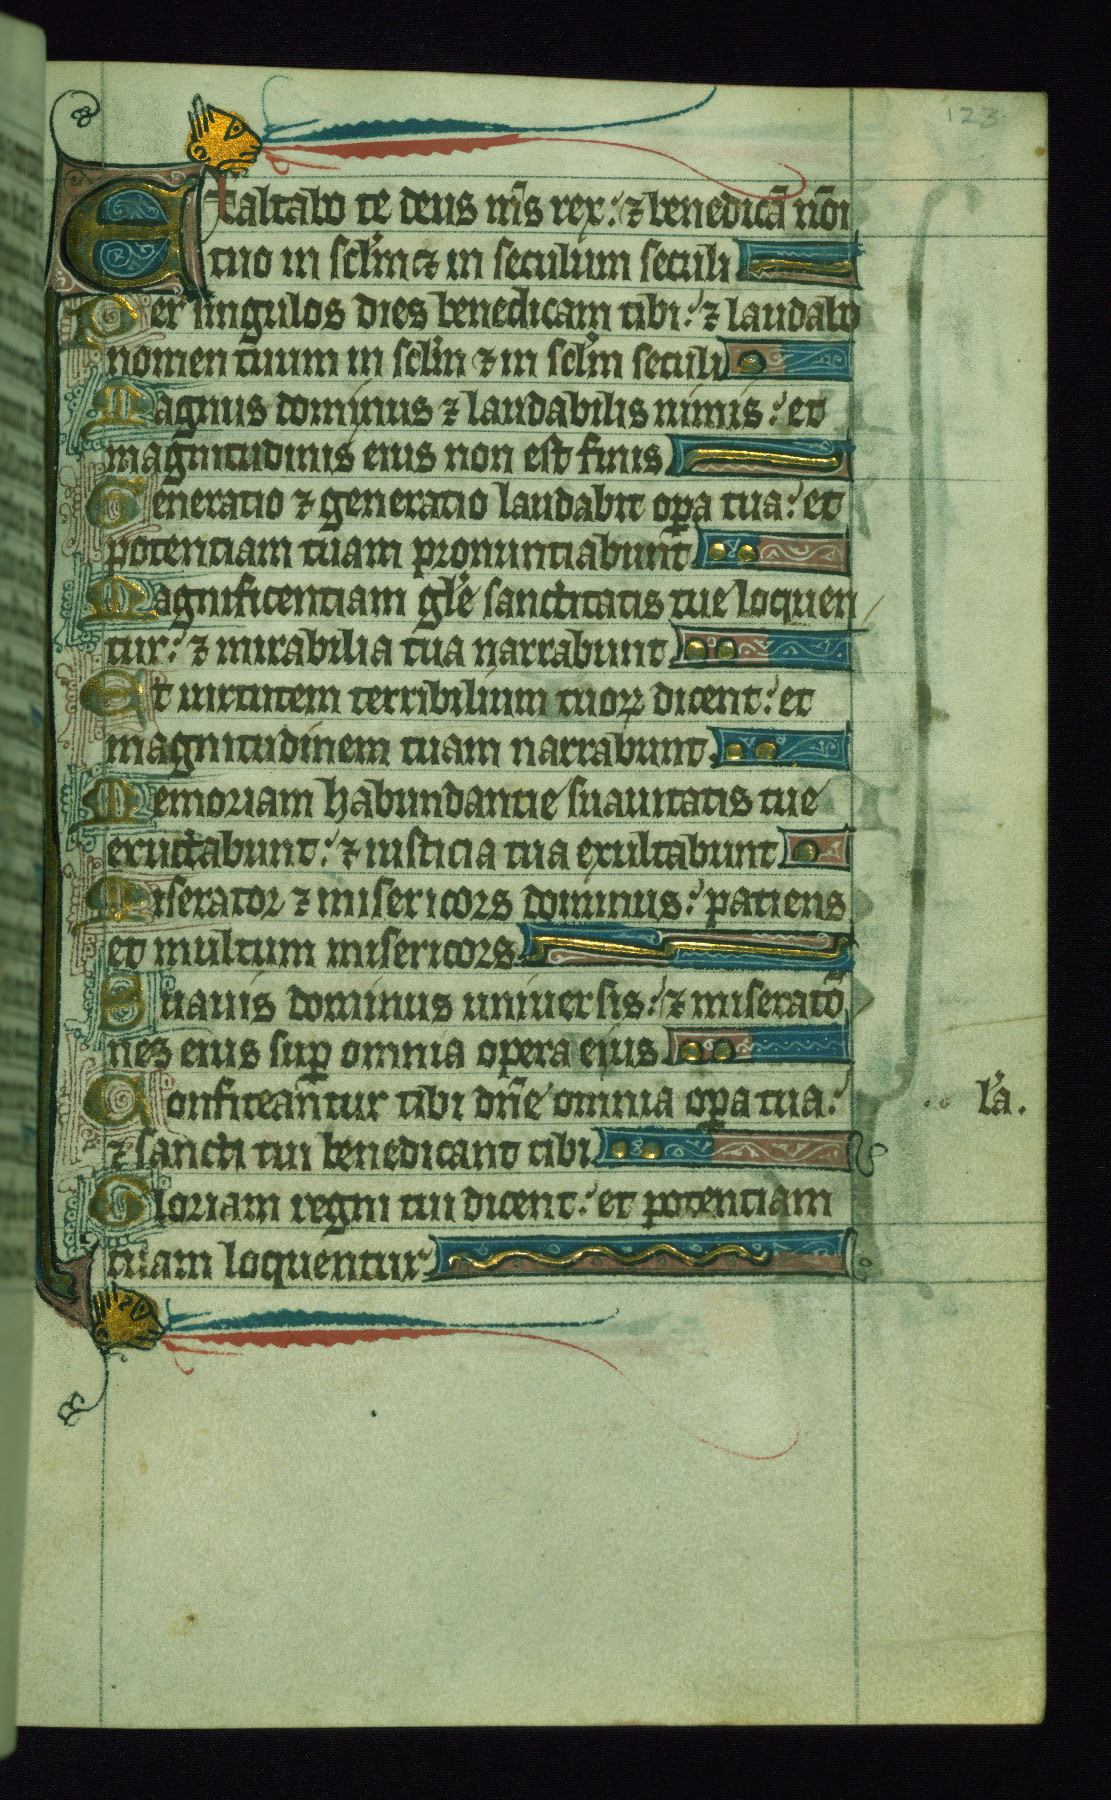 123
Exaltabo te deus nr̄s rex: ⁊ benedicā nōi
tuo in sclm̄ ⁊ in seculum seculi
Per singulos dies benedicam tibi: ⁊ laudabo
nomen tuum in sclm̄ ⁊ in sclm̄ seculi
Magnus dominus ⁊ laudabilis nimis: et
magnitudinis eius non est finis
Generatio ⁊ generatio laudabit oꝑa tua: et
potentiam tuam pronuntiabunt
Magnificentiam gl̄e sanctitatis tue loquen
tur: ⁊ mirabilia tua narrabunt
Et uirtutem terribilium tuoꝝ dicent: et
magnitudinem tuam narrabunt
Memoriam habundantie suauitatis tue
eructabunt: ⁊ iusticia tua exultabunt
Miserator ⁊ misericors dominus: patiens
et multum misericors
Suauis dominus uniuersis: ⁊ miseratō
nes eius suꝑ omnia opera eius
Confiteant̄ur tibi dn̄e omnia oꝑa tua:
⁊ sancti tui benedicant tibi
Gloriam regni tui dicent: et potentiam
tuam loquentur